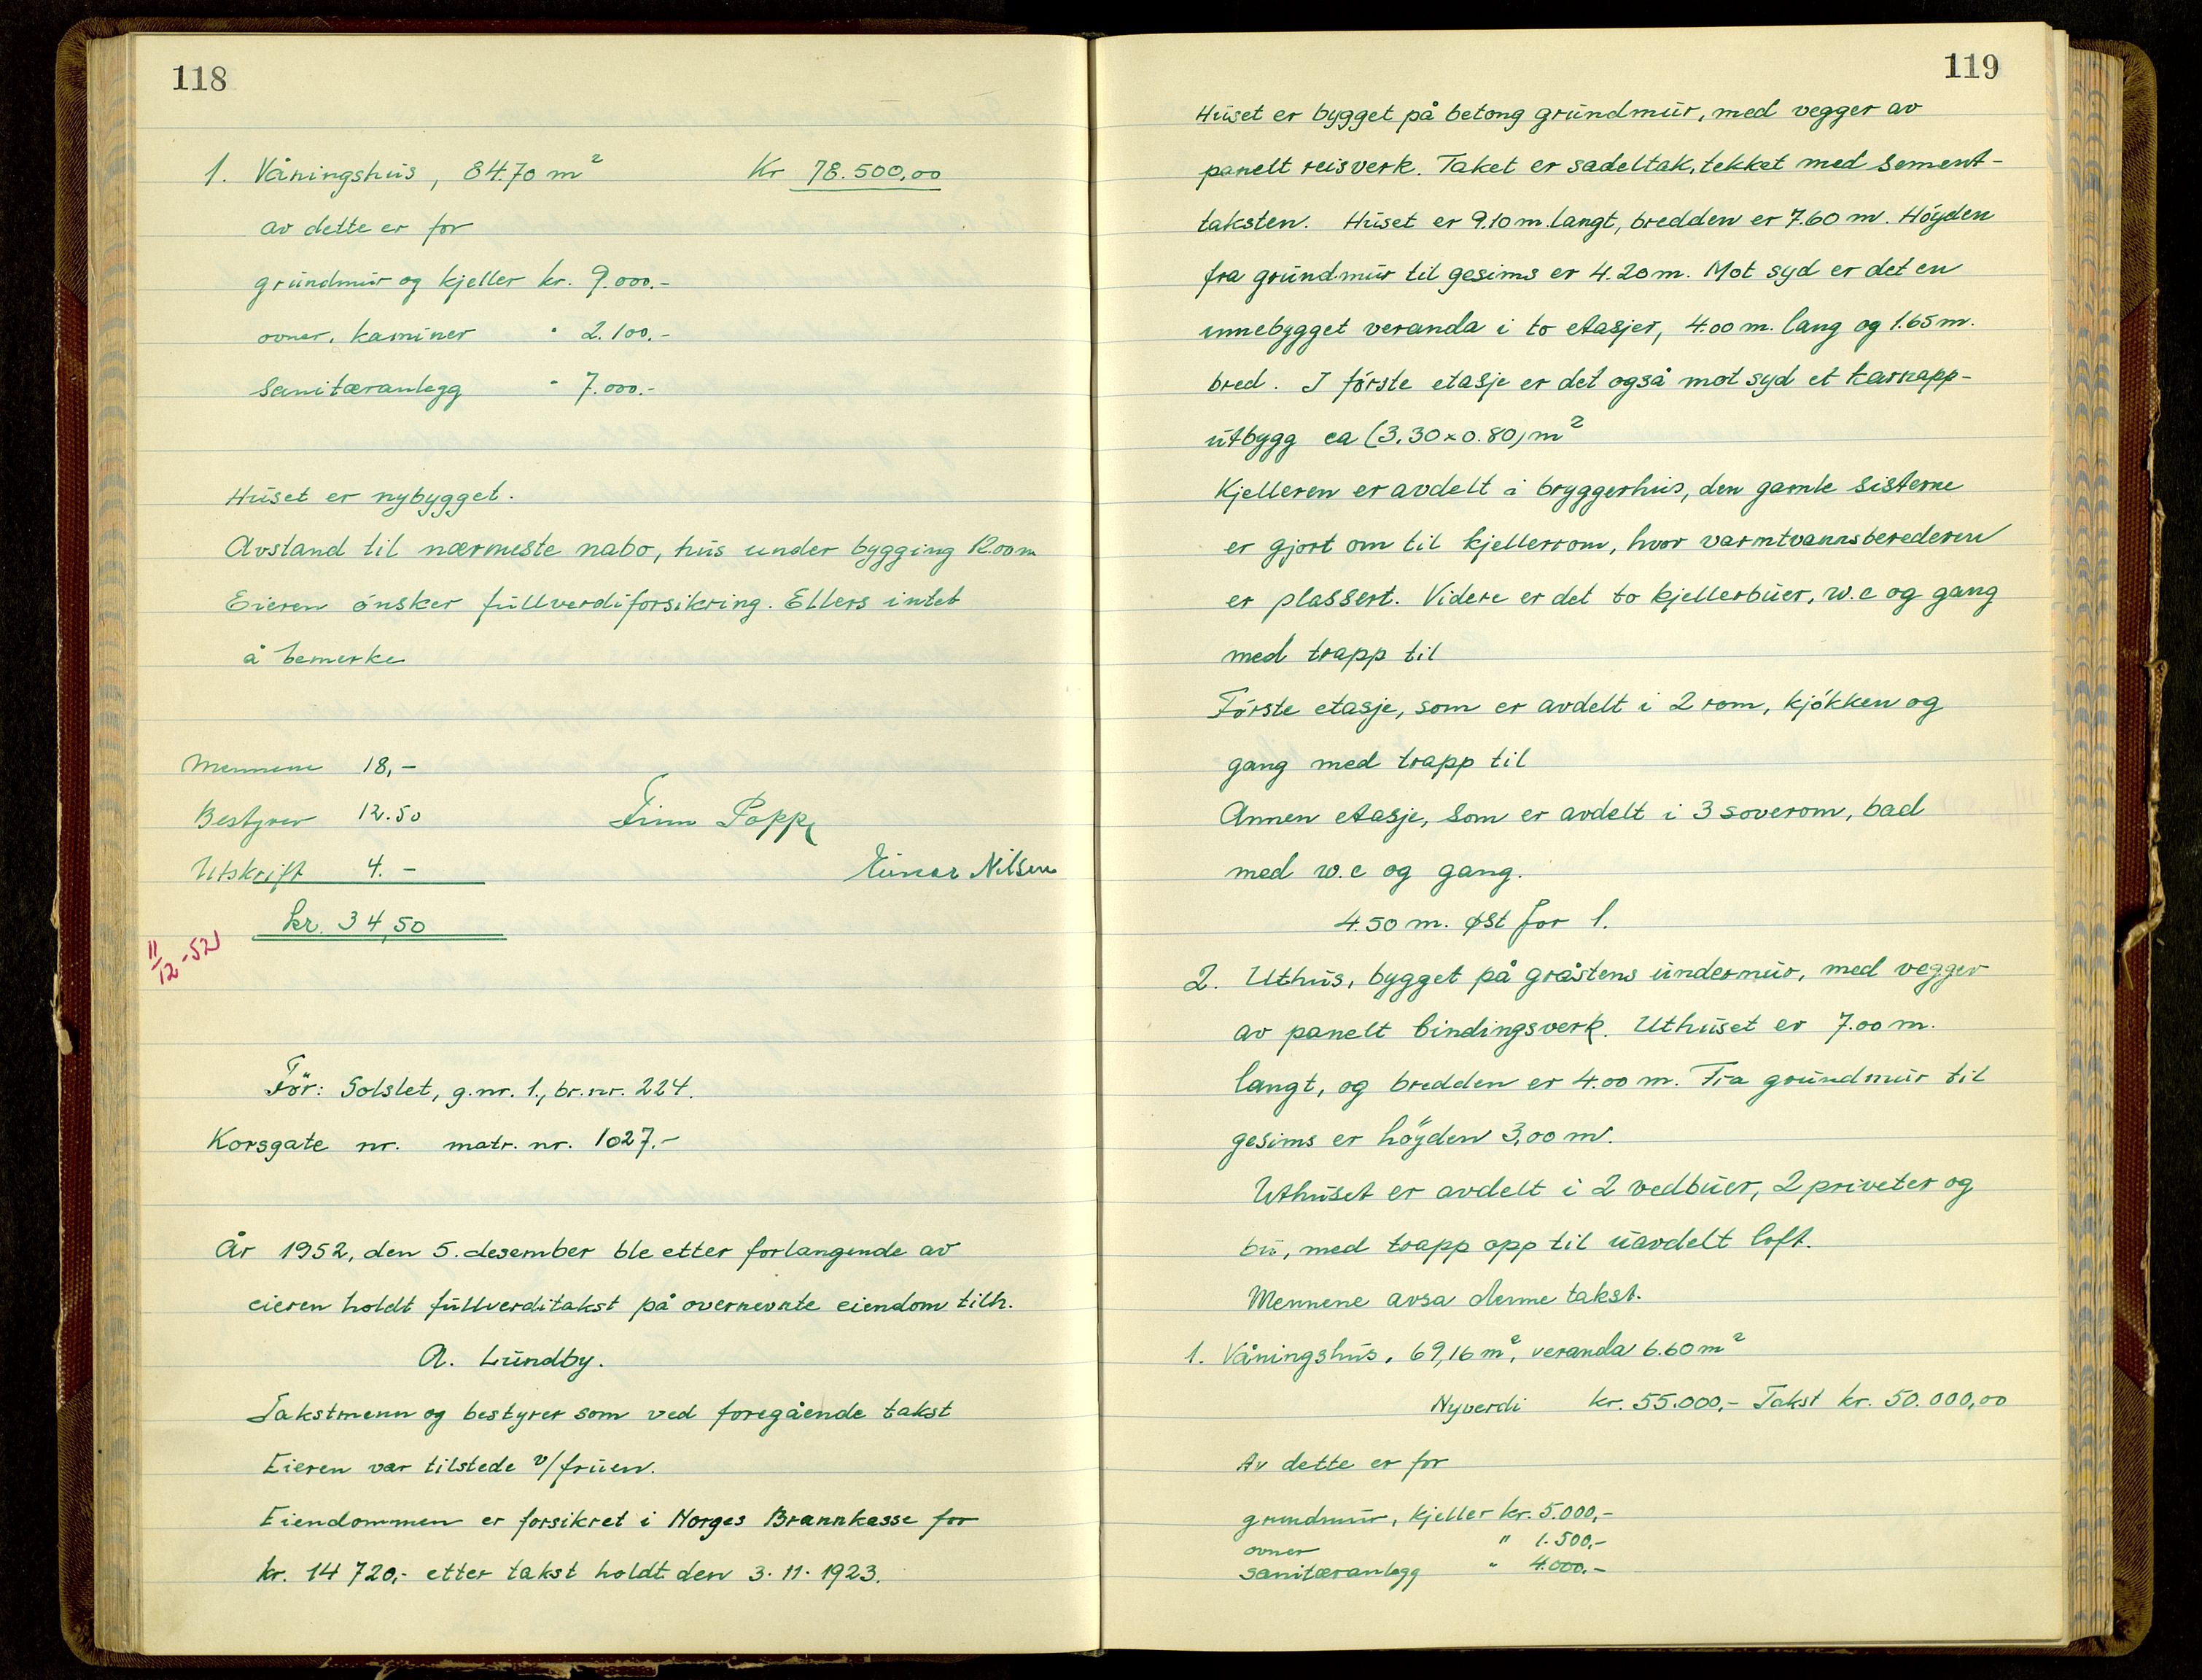 118
1. Våningshus, 84.70 m² Kr 78.500,00
av dette er for
grundmur og kjeller kr. 9.000.-
ovner, kaminer " 2.100.-
Sanitæranlegg " 7.000.-
Huset er nybygget.
Avstand til nærmeste nabo, hus under bygging 12.00 m
Eieren ønsker fullverdiforsikring. Ellers intet
å bemerke
Mennene 18,-
Bestyrer 12.50
Finn Popp
Utskrift 4.-
Einar Nilsen
kr. 34,50
11/12-52
För: Solslet, g.nr. 1., br.nr. 224.
Korsgate nr. matr. nr. 1027.-
År 1952, den 5. desember ble etter forlangende av
eieren holdt fullverditakst på overnevnte eiendom tilh.
A. Lundby.
Takstmenn og bestyrer som ved foregående takst
Eieren var tilstede v/fruen.
Eiendommen er forsikret i Norges Brannkasse for
kr. 14 720,- etter takst holdt den 3.11.1923.
119
Huset er bygget på betong grundmur, med vegger av
panelt reisverk. Taket er sadeltak, tekket med sement-
taksten. Huset er 9.10 m. langt, bredden er 7.60 m. Höyden
fra grundmur til gesims er 4.20 m. Mot syd er det en
innebygget veranda i to etasjer, 4.00 m. lang og 1.65 m.
bred. I förste etasje er det også mot syd et karnapp-
utbygg ca (3.30 x 0.80) m²
Kjelleren er avdelt i bryggerhus, den gamle sisterne
er gjort om til kjellerrom, hvor varmtvannsberederen
er plassert. Videre er det to kjellerbuer, w.c og gang
med trapp til
Förste etasje, som er avdelt i 2 rom, kjökken og
gang med trapp til
Annen etasje, som er avdelt i 3 soverom, bad
med w.c og gang.
4.50 m. øst for 1.
2. Uthus, bygget på gråstens undermur, med vegger
av panelt bindingsverk. Uthuset er 7.00 m.
langt, og bredden er 4.00 m. Fra grundmur til
gesims er höyden 3,00 m.
Uthuset er avdelt i 2 vedbuer, 2 priveter og
bu, med trapp opp til uavdelt loft.
Mennene avsa denne takst.
1. Våningshus, 69,16 m², veranda 6.60 m²
Nyverdi kr. 55.000,- Takst kr. 50.000,00
Av dette er for
grundmur, kjeller kr. 5.000,-
ovner " 1.500,-
sanitæranlegg " 4.000.-